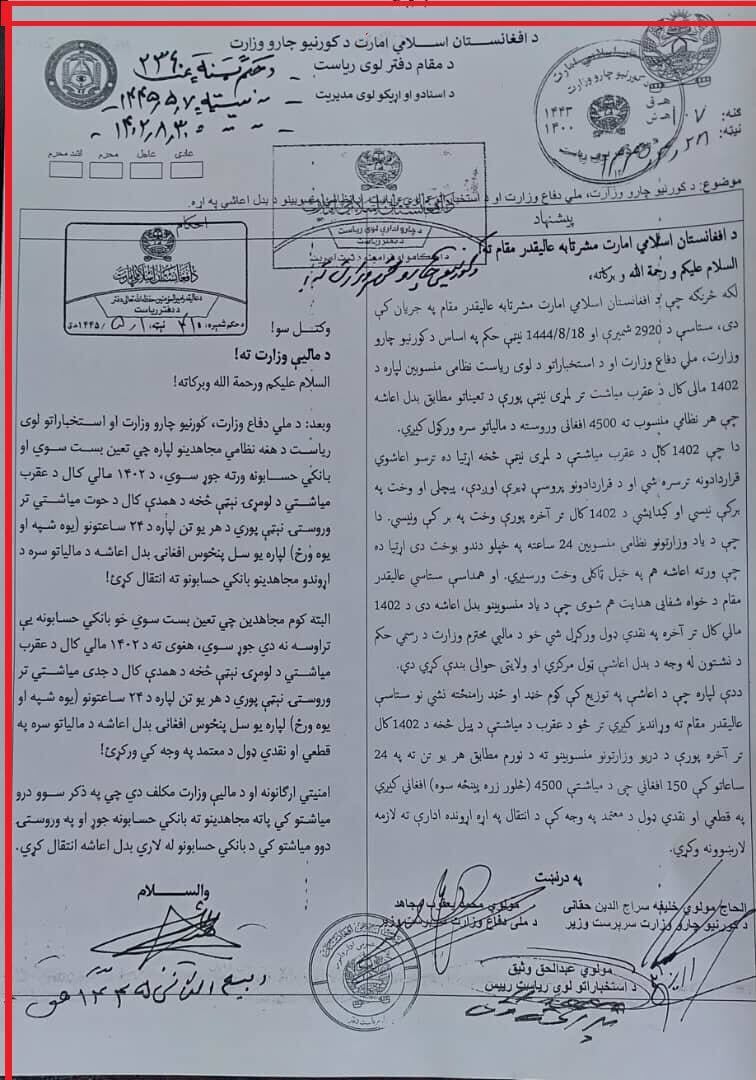 د افغانستان اسلامي امارت د کورنیو چارو وزارت
د مقام دفتر لوی ریاست
د اسنادو او اړیکو لوی مدیریت
عادي
عاجل
محرم
اشد محرم
ګڼه:
نېټه:
هـ ق ۱۴۴۳
هـ ش ۱۴۰۰
موضوع: د کورنیو چارو وزارت، ملي دفاع وزارت او د استخباراتو لوی ریاست د نظامي منسوبینو د بدل اعاشې په اړه.
پیشنهاد
د افغانستان اسلامي امارت مشرتابه عالیقدر مقام ته!
السلام علیکم و رحمة الله و برکاته،
لکه څرنګه چې د افغانستان اسلامي امارت مشرتابه عالیقدر مقام په جریان کې
دی، ستاسې د 2920 شمېرې او 1444/8/18 نېټې حکم په اساس د کورنیو چارو
وزارت، ملي دفاع وزارت او د استخباراتو د لوی ریاست نظامی منسوبین لپاره د
1402 مالی کال د عقرب میاشت تر لمړی نېټې پورې د تعیناتو مطابق بدل اعاشه
چې هر نظامي منسوب ته 4500 افغانی وروسته د مالیاتو سره ورکول کیږي.
دا چې 1402 کال د عقرب میاشتې د لمړی نېټې څخه اړتیا ده ترسو اعاشوي
قراردادونه ترسره شي او د قراردادونو پروسې ډېرې اوږدې، پیچلی او وخت په
برکې نیسي او کیدایشي د 1402 کال تر آخره پورې وخت په بر کې ونیسي. دا
چې د یاد وزارتونو نظامی منسوبین 24 ساعته په خپلو دندو بوخت دی اړتیا ده
چې ورته اعاشه هم په خپل ټاکلی وخت ورسیږي. او همداسې ستاسې عالیقدر
مقام د خواه شفایی هدایت هم شوی چې د یاد منسوبینو بدل اعاشه دی د 1402
مالي کال تر آخره په نقدي ډول ورکړل شي خو د مالیې محترم وزارت د رسمي حکم
د نشتون له وجه د بدل اعاشې ټول مرکزي او ولایتی حوالی بندې کړي دي.
ددې لپاره چې د اعاشې په توزیع کې کوم خنډ او ځنډ رامنځته نشي نو ستاسې
عالیقدر مقام ته وړاندیز کیږي تر څو د عقرب د میاشتې د پیل څخه د 1402 کال
تر آخره پورې د دریو وزارتونو منسوبینو ته د نورم مطابق هر یو تن ته په 24
ساعاتو کې 150 افغاني چی د میاشتې 4500 (څلور زره پینځه سوه) افغاني کیږي
په قطعي او نقدي ډول د معتمد په وجه کې د انتقال په اړه اړونده ادارې ته لازمه
لارښوونه وکړي.
په درنښت
الحاج مولوي خلیفه سراج الدین حقانی
د کورنیو چارو وزارت سرپرست وزیر
مولوي محمد یعقوب مجاهد
د ملی دفاع وزارت سرپرست وزیر
مولوي عبدالحق وثیق
د استخباراتو لوی ریاست رییس
احکام
د افغانستان اسلامي امارت
د عالیقدر امیرالمؤمنین حفظه الله تعالی دفتر
د دفتر ریاست
د حکم شمېره: نېټه: ۱۴۴۵/۵/۱
وکتل سو!
د مالیې وزارت ته!
السلام علیکم ورحمة الله وبرکاته!
وبعد: د ملي دفاع وزارت، کورنیو چارو وزارت او استخباراتو لوی
ریاست د هغه نظامي مجاهدینو لپاره چي تعین بست سوي او
بانکي حسابونه ورته جوړ سوي، د ۱۴۰۲ مالي کال د عقرب
میاشتي د لومړۍ نېټې څخه د همدې کال د حوت میاشتي تر
وروستۍ نېټې پوري د هر یو تن لپاره د ۲۴ ساعتونو (یوه شپه او
یوه ورځ) لپاره یو سل پنځوس افغانۍ بدل اعاشه د مالیاتو سره د
اړوندو مجاهدینو بانکي حسابونو ته انتقال کړئ!
البته کوم مجاهدین چي تعین بست سوي خو بانکي حسابونه یې
تراوسه نه دي جوړ سوي، هغوی ته د ۱۴۰۲ مالي کال د عقرب
میاشتي د لومړۍ نېټې څخه د همدې کال د جدی میاشتي تر
وروستۍ نېټې پوري د هر یو تن لپاره د ۲۴ ساعتونو (یوه شپه او
یوه ورځ) لپاره یو سل پنځوس افغانۍ بدل اعاشه د مالیاتو سره په
قطعي او نقدي ډول د معتمد په وجه کي ورکړئ!
امنیتي ارګانونه او د مالیې وزارت مکلف دي چي په ذکر سوو درو
میاشتو کي پاته مجاهدینو ته بانکي حسابونه جوړ او په وروستۍ
دوو میاشتو کي د بانکي حسابونو له لاري بدل اعاشه انتقال کړي.
والسلام
ربیع الثاني ۱۴۴۵ هـ ق